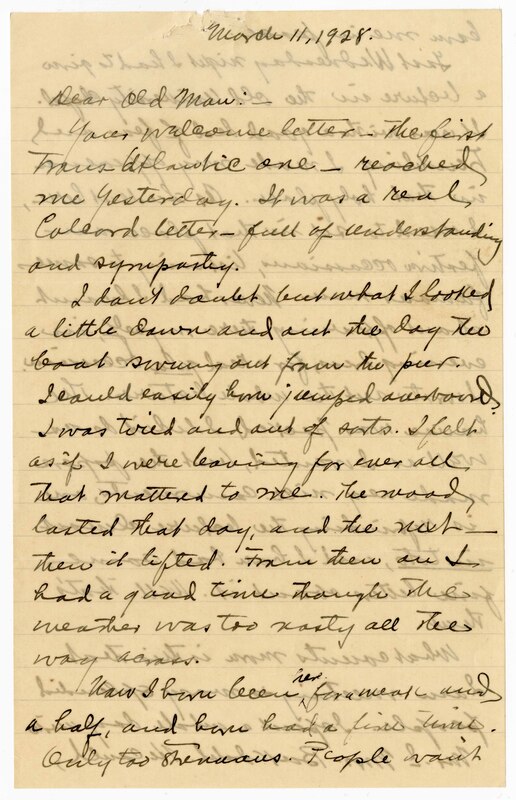 March 11, 1928.
Dear Old Man:—
Your welcome letter — the first
Trans Atlantic one — reached
me yesterday. It was a real
Colcord letter — full of understanding
and sympathy.
I don't doubt but what I looked
a little down and out the day the
boat swung out from the pier.
I could easily have jumped overboard.
I was tired and out of sorts. I felt
as if I were leaving for ever all
that mattered to me. The mood
lasted that day, and the next —
then it lifted. From then on I
had a good time though the
weather was too nasty all the
way across.
Now I have been here for a week and
a half, and have had a fine time.
Only too strenuous. People won't